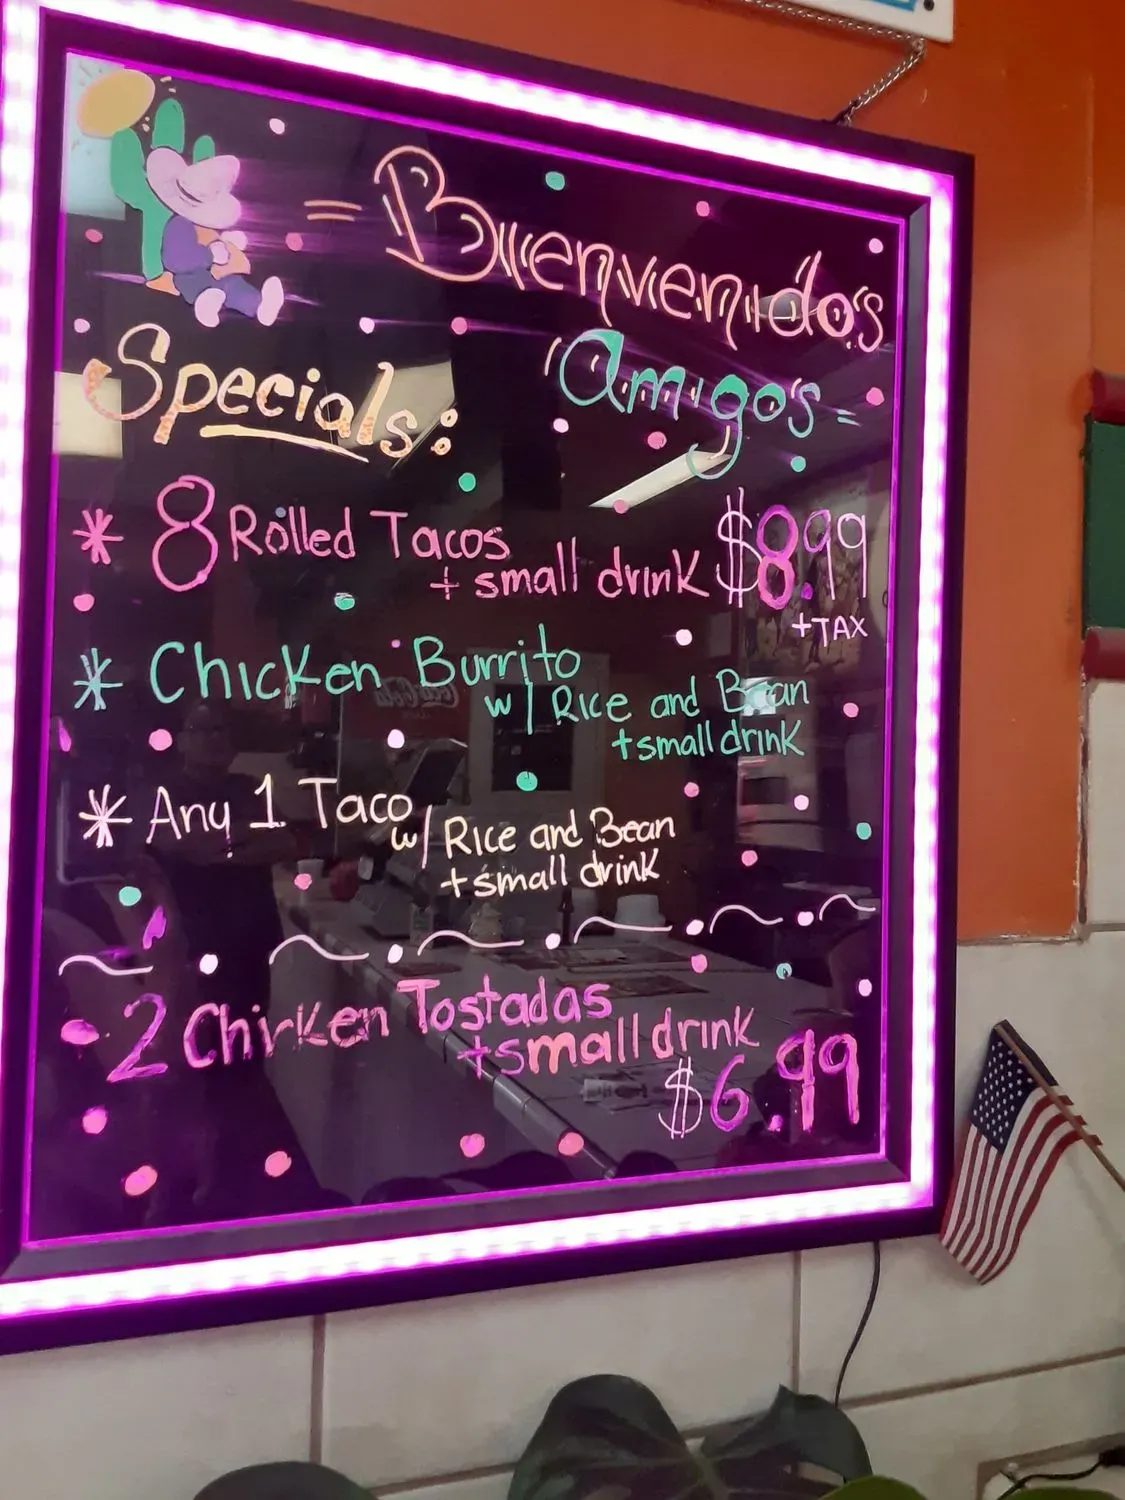 = Bienvenido's
Amigo's =
Specials:
* 8 Rolled Tacos
+ small drink $8.99
+TAX
* Chicken Burrito
w/ Rice and Bean
+ small drink
* Any 1 Taco
w/ Rice and Bean
+ small drink
2 Chicken Tostadas
+ small drink
$6.99